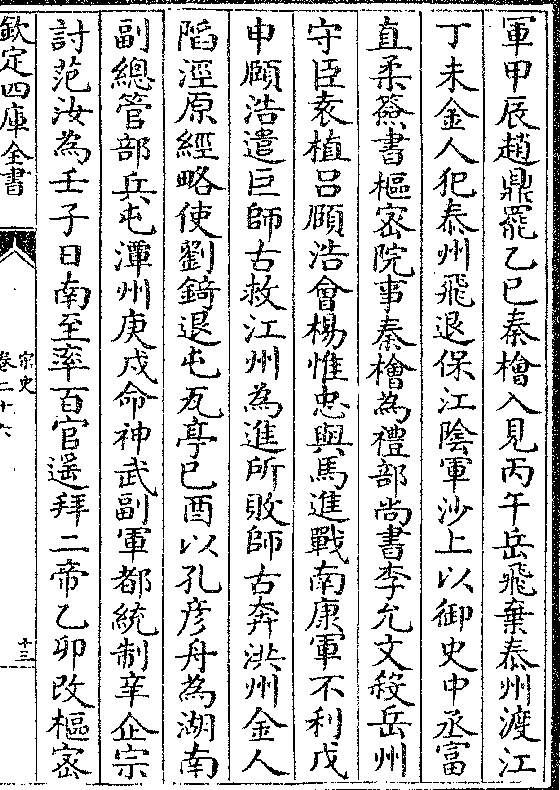 軍甲辰趙鼎罷乙巳秦檜入見丙午岳飛棄泰州渡江
丁未金人犯泰州飛退保江陰軍沙上以御史中丞富
直柔簽書樞密院事秦檜為禮部尚書李允文殺岳州
守臣袁植呂頤浩會楊惟忠與馬進戰南康軍不利戊
申頤浩遣巨師古救江州為進所敗師古奔洪州金人
陷涇原經略使劉錡退屯瓦亭己酉以孔彦舟為湖南
副總管部兵屯潭州庚戌命神武副軍都統制辛企宗
討范汝為壬子日南至率百官遥拜二帝乙卯改樞密
欽定四庫全書
宗史
卷二十六
十三